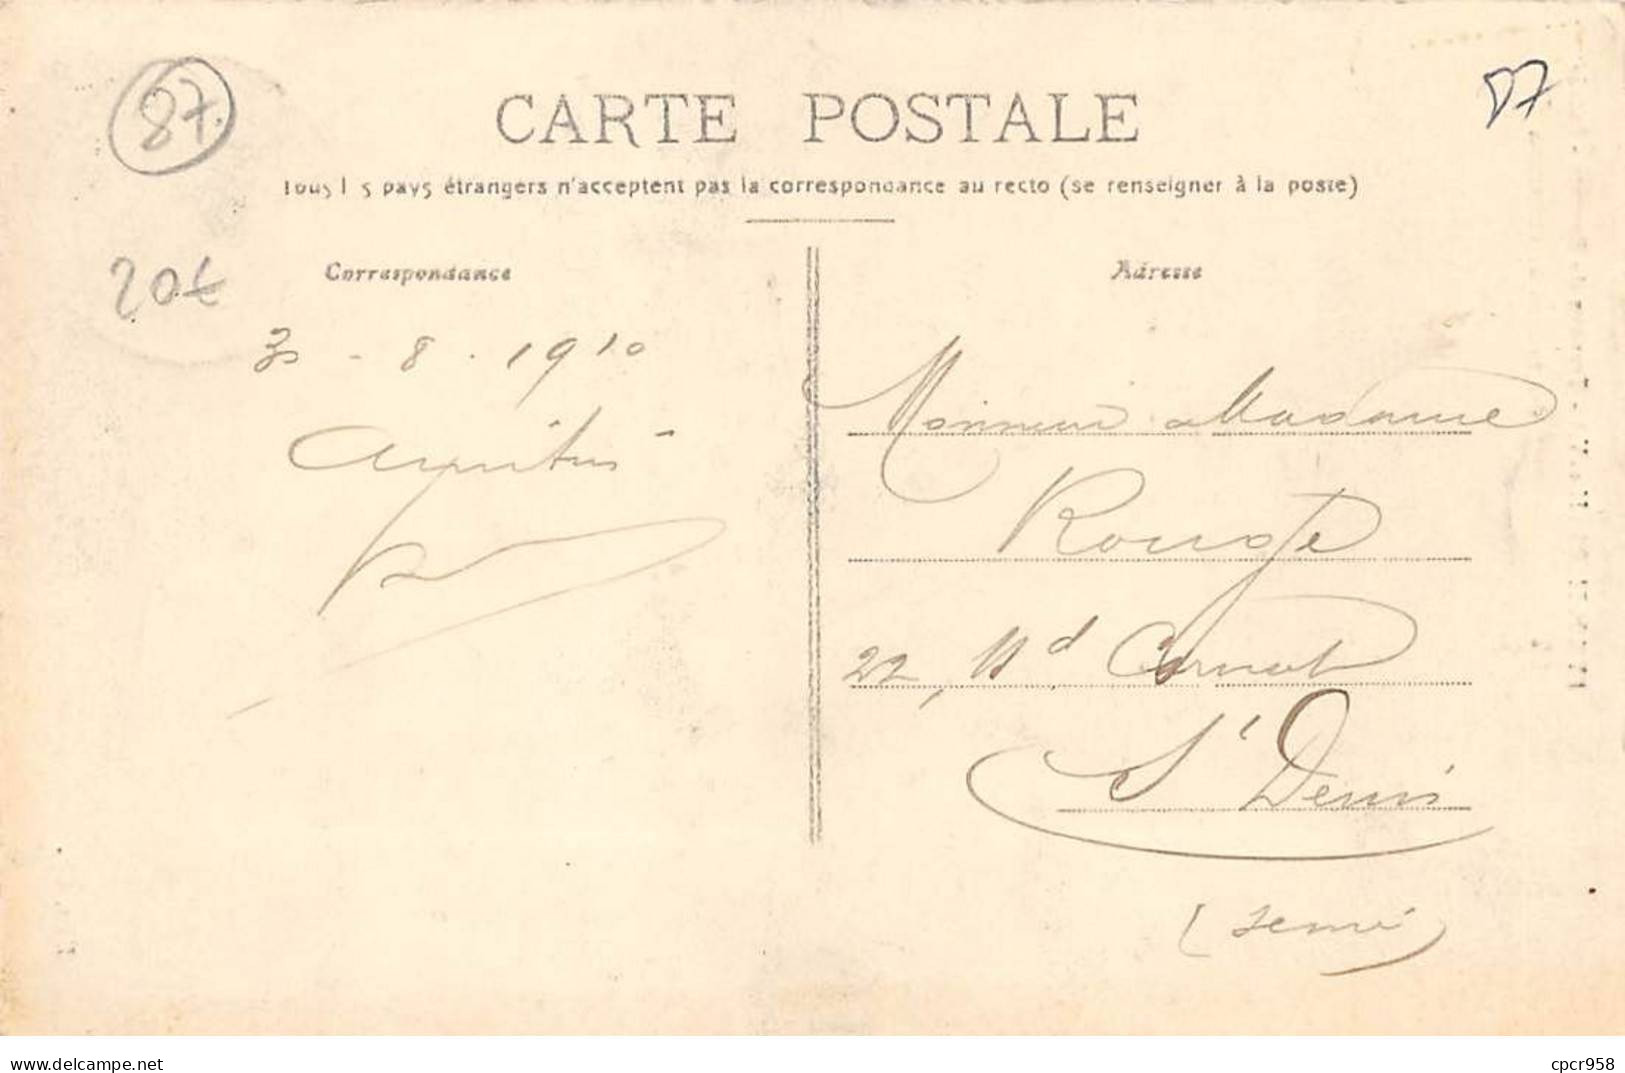 87.
CARTE POSTALE
87
Tous les pays étrangers n'acceptent pas la correspondance au recto (se renseigner à la poste)
20€
Correspondance
Adresse
30 - 8 - 1910
Amitiés
Monsieur et Madame
Rouge
22, Bd Carnot
St Denis
(Seine)
www.delcampe.net
cpcr958